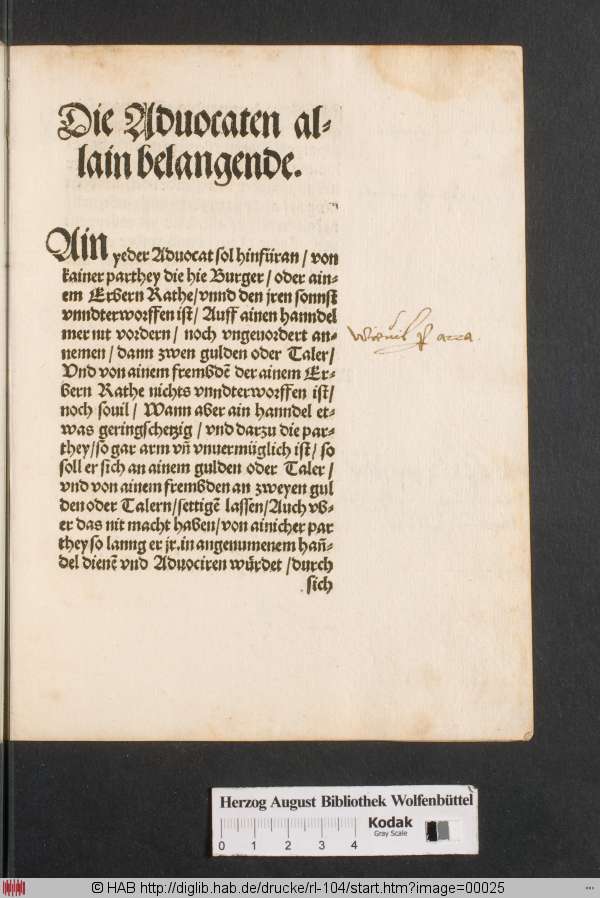 Die Aduocaten al-
lain belangende.
Ain yeder Aduocat sol hinfüran / von
kainer parthey die hie Burger / oder ain-
em Erbern Rathe / vnnd den jren sonnst
vnndterworffen ist / Auff ainen hanndel
mer nit vordern / noch vngeuordert an-
nemen / dann zwen gulden oder Taler /
Vnd von ainem frembdē der ainem Er-
bern Rathe nichts vnndterworffen ist /
noch souil / Wann aber ain hanndel et-
was geringschetzig / vnd darzu die par-
they / so gar arm vn̄ vnuermüglich ist / so
soll er sich an ainem gulden oder Taler /
vnd von ainem frembden an zweyen gul
den oder Talern / settigē lassen / Auch vb-
er das nit macht haben / von ainicher par
they so lanng er jr. in angenumenem han̄-
del dienē vnd Aduociren würdet / durch
sich
Herzog August Bibliothek Wolfenbüttel
Kodak
Gray Scale
0 1 2 3 4
© HAB http://diglib.hab.de/drucke/rl-104/start.htm?image=00025